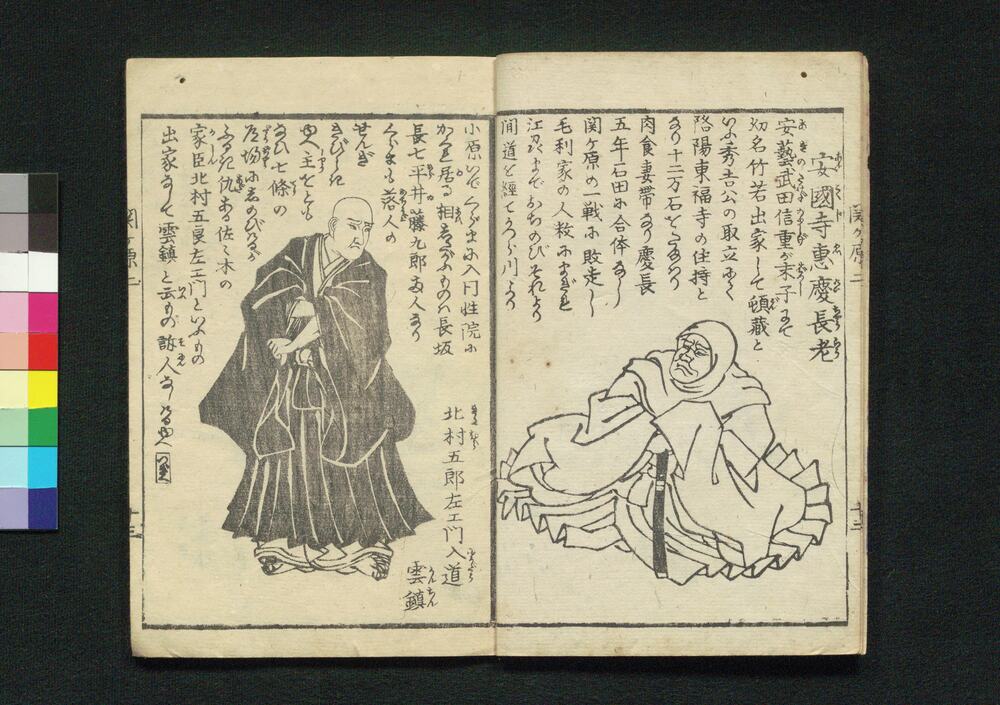 安國寺惠慶長老
安藝武田信重が末子にて
幼名竹若出家して頓藏と
いふ秀吉公の取立にて
洛陽東福寺の住持と
なり十二万石をたまハり
肉食妻帯なり慶長
五年石田に合体なし
関ヶ原の一戦に敗走し
毛利家の人数にまぎれ
江州までおちのびそれより
間道を經てかつら川より
小原いでくらまに入月性院に
かくれ居る相したがふものハ長坂
長七平井藤九郎両人なり
くらまも落人の
せんぎ
きびしき
ゆへ
七條の
道場にしのびゐるが
ふるき仇ある佐々木の
家臣北村五良左エ門といふもの
出家なして雲鎮と云もの訴人なしけるゆへ
北村五郎左エ門入道
雲鎮
関ヶ原二